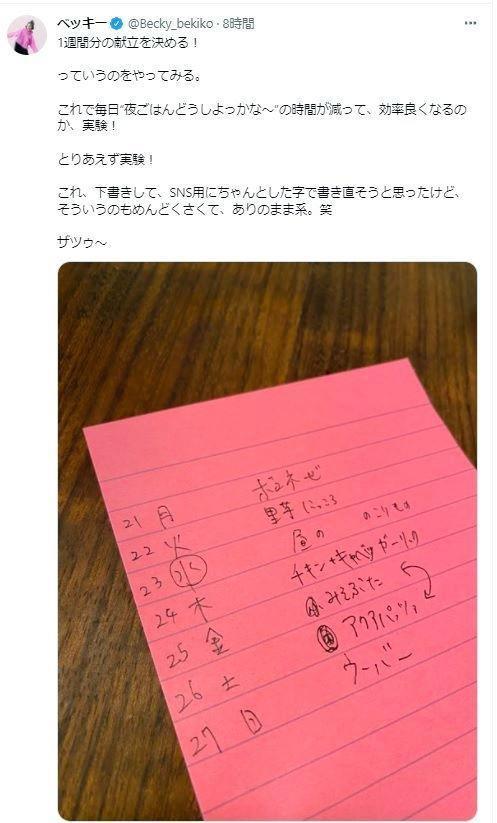 ベッキー @Becky_bekiko · 8時間
1週間分の献立を決める！
っていうのをやってみる。
これで毎日“夜ごはんどうしよっかな〜”の時間が減って、効率良くなるの
か、実験！
とりあえず実験！
これ、下書きして、SNS用にちゃんとした字で書き直そうと思ったけど、
そういうのもめんどくさくて、ありのまま系。笑
ザツゥ〜
21 月 ボロネゼ
22 火 里芋 にっころ
23 水 昼の のこりもの
24 木 チキン+キャベツ ガーリック
25 金 みそぶた
26 土 アクアパッツァ
27 日 ウーバー